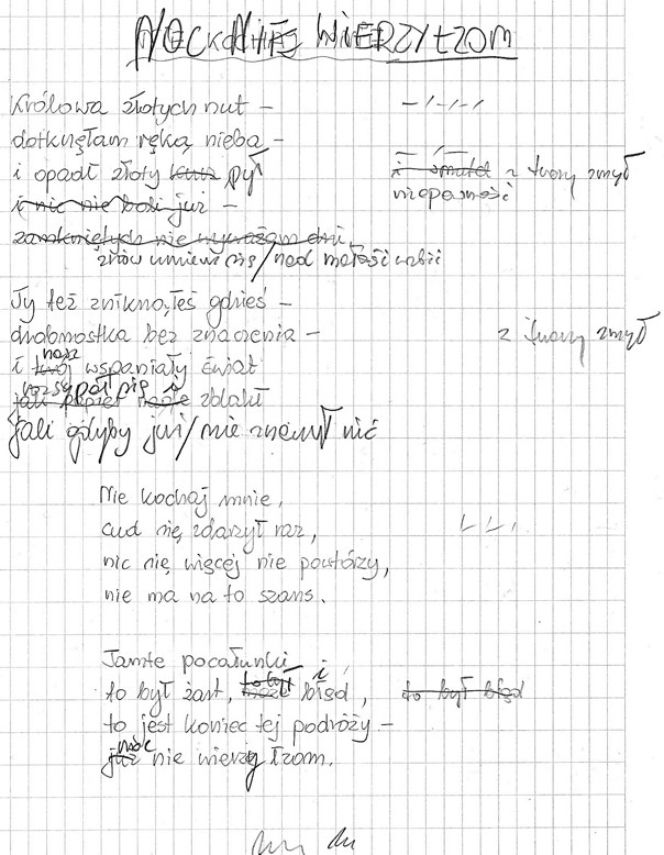 NOCKA NIE WIERZY ŁZOM
Królowa złotych nut –
dotknęłam ręką nieba –
i opadł złoty kurz pył
i smutek z twarzy zmył
niepewność
i nic nie boli już –
zamkniętych nie wyważam drzwi
znów umiem się / nad
Ty też zniknąłeś gdzieś –
drobnostka bez znaczenia –
z twarzy zmył
nasz
i twój wspaniały świat
rozsypał się i
jak papier nagle zblakł
jak gdyby już / nie znaczył nic
Nie kochaj mnie,
cud się zdarzył raz,
nic się więcej nie powtórzy,
nie ma na to szans.
Tamte pocałunki
to był i
to był żart, może błąd, to był błąd
to jest koniec tej podróży –
noc
już nie wierzy łzom.